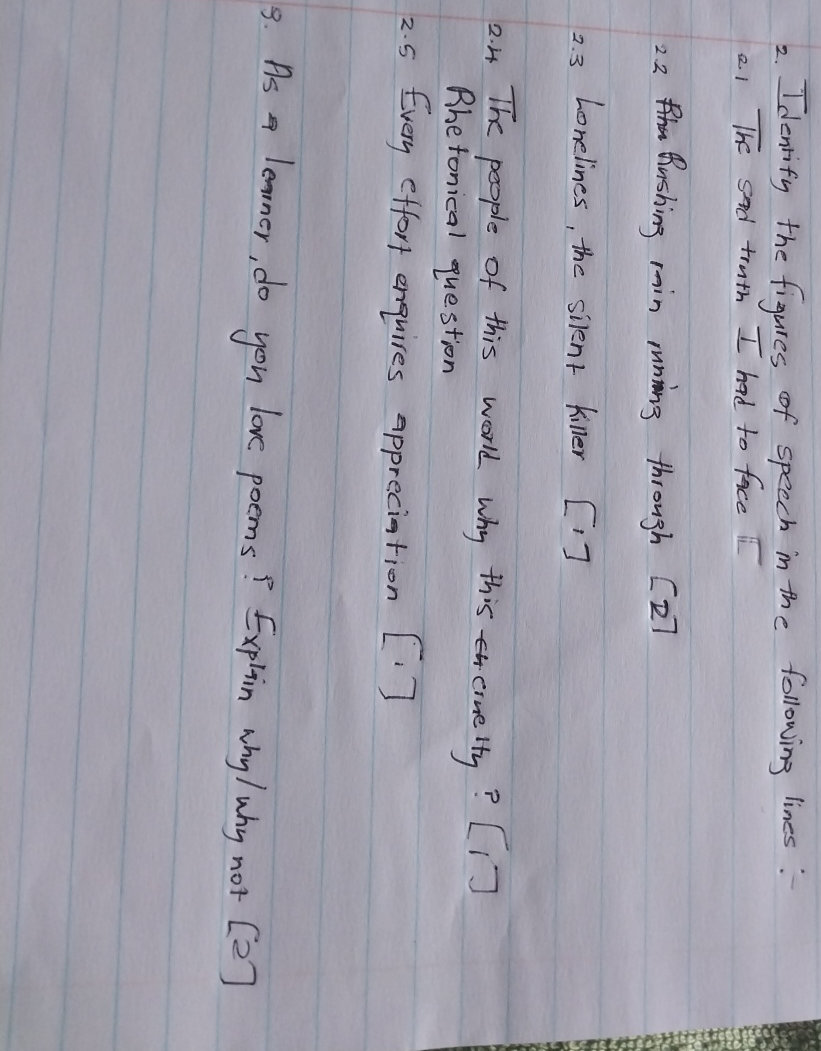 2. Identify the figures of speech in the following lines :-
2.1 The sad truth I had to face [
2.2 Rushing rain running through [2]
2.3 Lonelines, the silent killer [1]
2.4 The people of this world why this cruelty? [1]
Rhetorical question
2.5 Every effort enquires appreciation [1]
9. As a learner, do you love poems? Explain why/why not [2]